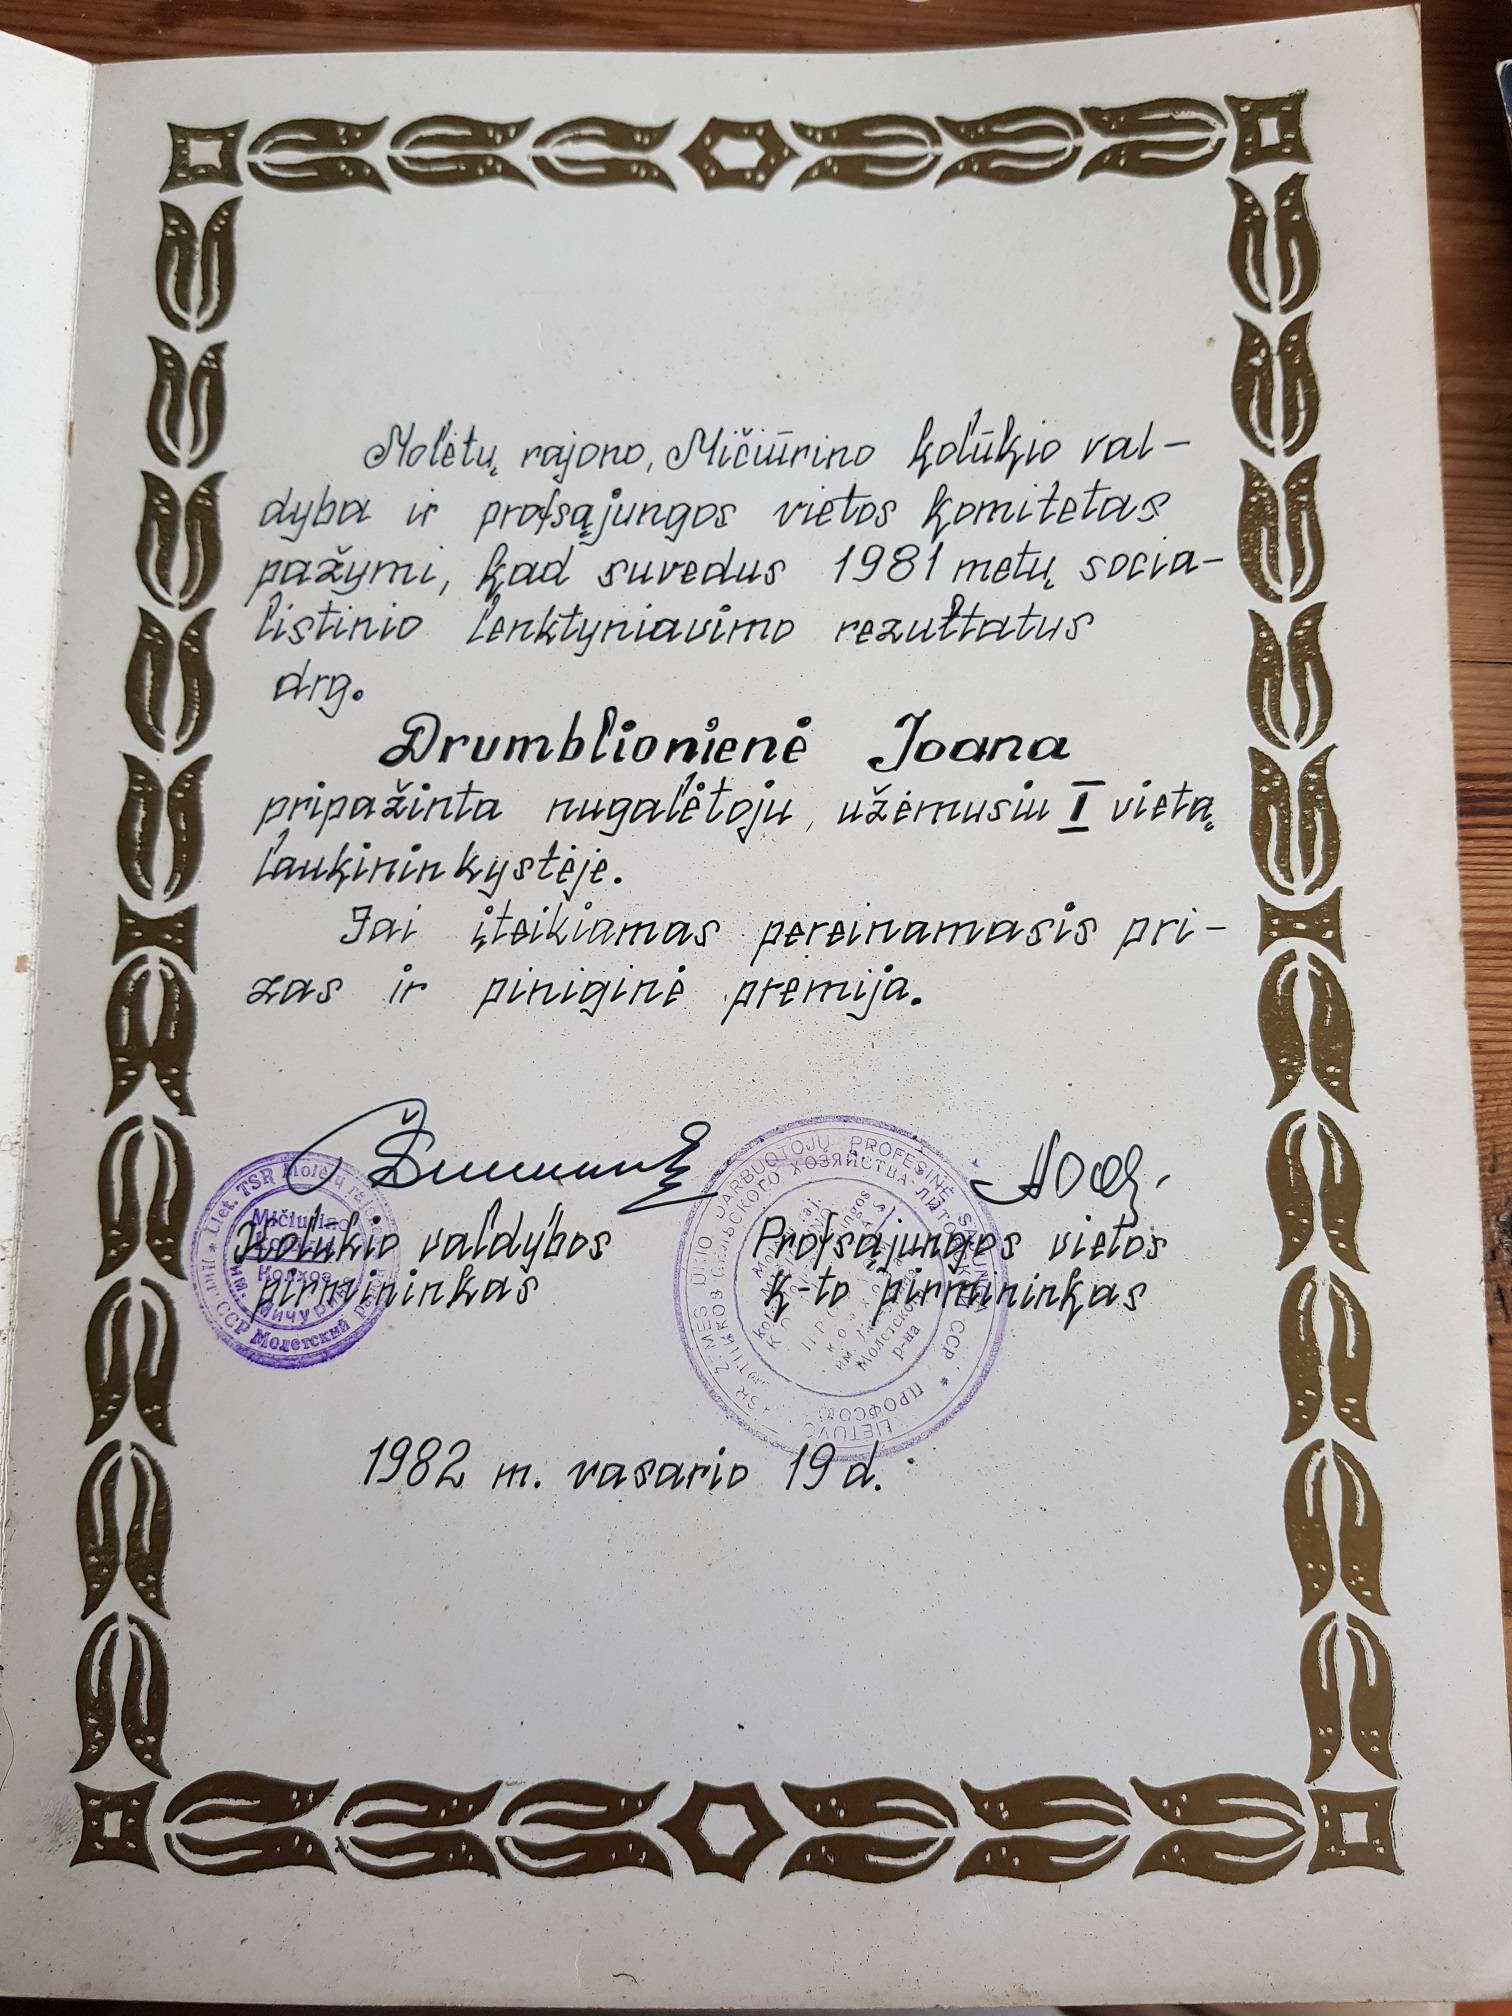 Molėtų rajono, Mičiūrino kolūkio val-
dyba ir profsąjungos vietos komitetas
pažymi, kad suvedus 1981 metų socia-
listinio lenktyniavimo rezultatus
drg.
Drumblionienė Joana
pripažinta nugalėtoju, užėmusiu I vietą
laukininkystėje.
Jai įteikiamas pereinamasis pri-
zas ir piniginė premija.
Kolūkio valdybos
pirmininkas
Profsąjungos vietos
k-to pirmininkas
Liet. TSR Molėtų raj.
Mičiurino
Колхоз
им. Мичурина
Лит. ССР Молетский район
LIETUVOS TSR ŽEMĖS ŪKIO DARBUOTOJŲ PROFESINĖ SĄJUNGA
ХОЗЯЙСТВА ЛИТОВСКОЙ ССР
Молетского
р-на
1982 m. vasario 19 d.